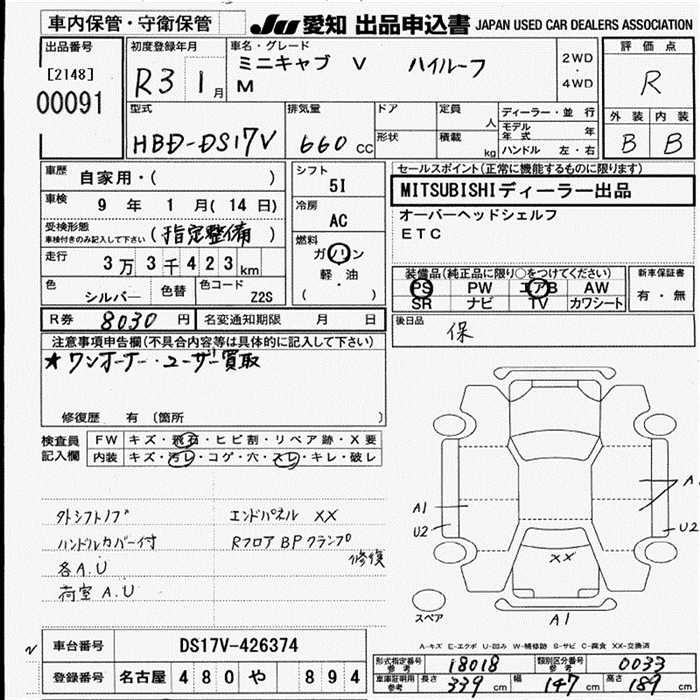 車内保管・守衛保管 JU 愛知 出品申込書 JAPAN USED CAR DEALERS ASSOCIATION
出品番号 初度登録年月 車名・グレード 評価点
[2148] R3 1月 ミニキャブ V ハイルーフ 2WD・4WD R
00091 M
型式 排気量 ドア 定員 人 ディーラー・並行 外装 内装
HBD-DS17V 660cc 形状 積載 kg モデル年式 年 B B
ハンドル 左・右
車歴 自家用・( ) シフト 5I セールスポイント(正常に機能するものに限ります)
車検 9年 1月(14日) 冷房 AC MITSUBISHIディーラー出品
受検形態 車検付きのみ記入して下さい (指定整備) オーバーヘッドシェルフ
燃料 ガソリン・軽油・( ) ETC
走行 3万3千423km 装備品(純正品に限り○をつけてください) 新車保証書
色 シルバー 色替 色コード Z2S PS PW エアB AW 有・無
SR ナビ TV カワシート
R券 8030円 名変通知期限 月 日 後日品 保
注意事項申告欄(不具合内容等は具体的に記入して下さい)
★ワンオーナー・ユーザー買取
修復歴 有 (箇所 )
検査員記入欄 FW キズ・飛石・ヒビ割・リペア跡・X要
内装 キズ・汚レ・コゲ・穴・スレ・キレ・破レ
A1
U2
A
U2
外シフトノブ エンドパネル XX
ハンドルカバー付 RフロアBPクランプ修復
XX
各A.U
荷室A.U
スペア
A1
A-キズ E-エクボ U-凹み W-補修跡 S-サビ C-腐食 XX-交換済
車台番号 DS17V-426374
型式指定番号 参考 18018 類別区分番号 参考 0033
登録番号 名古屋 480 や 894
車庫証明用 参考 長さ 339cm 幅 147cm 高さ 189cm